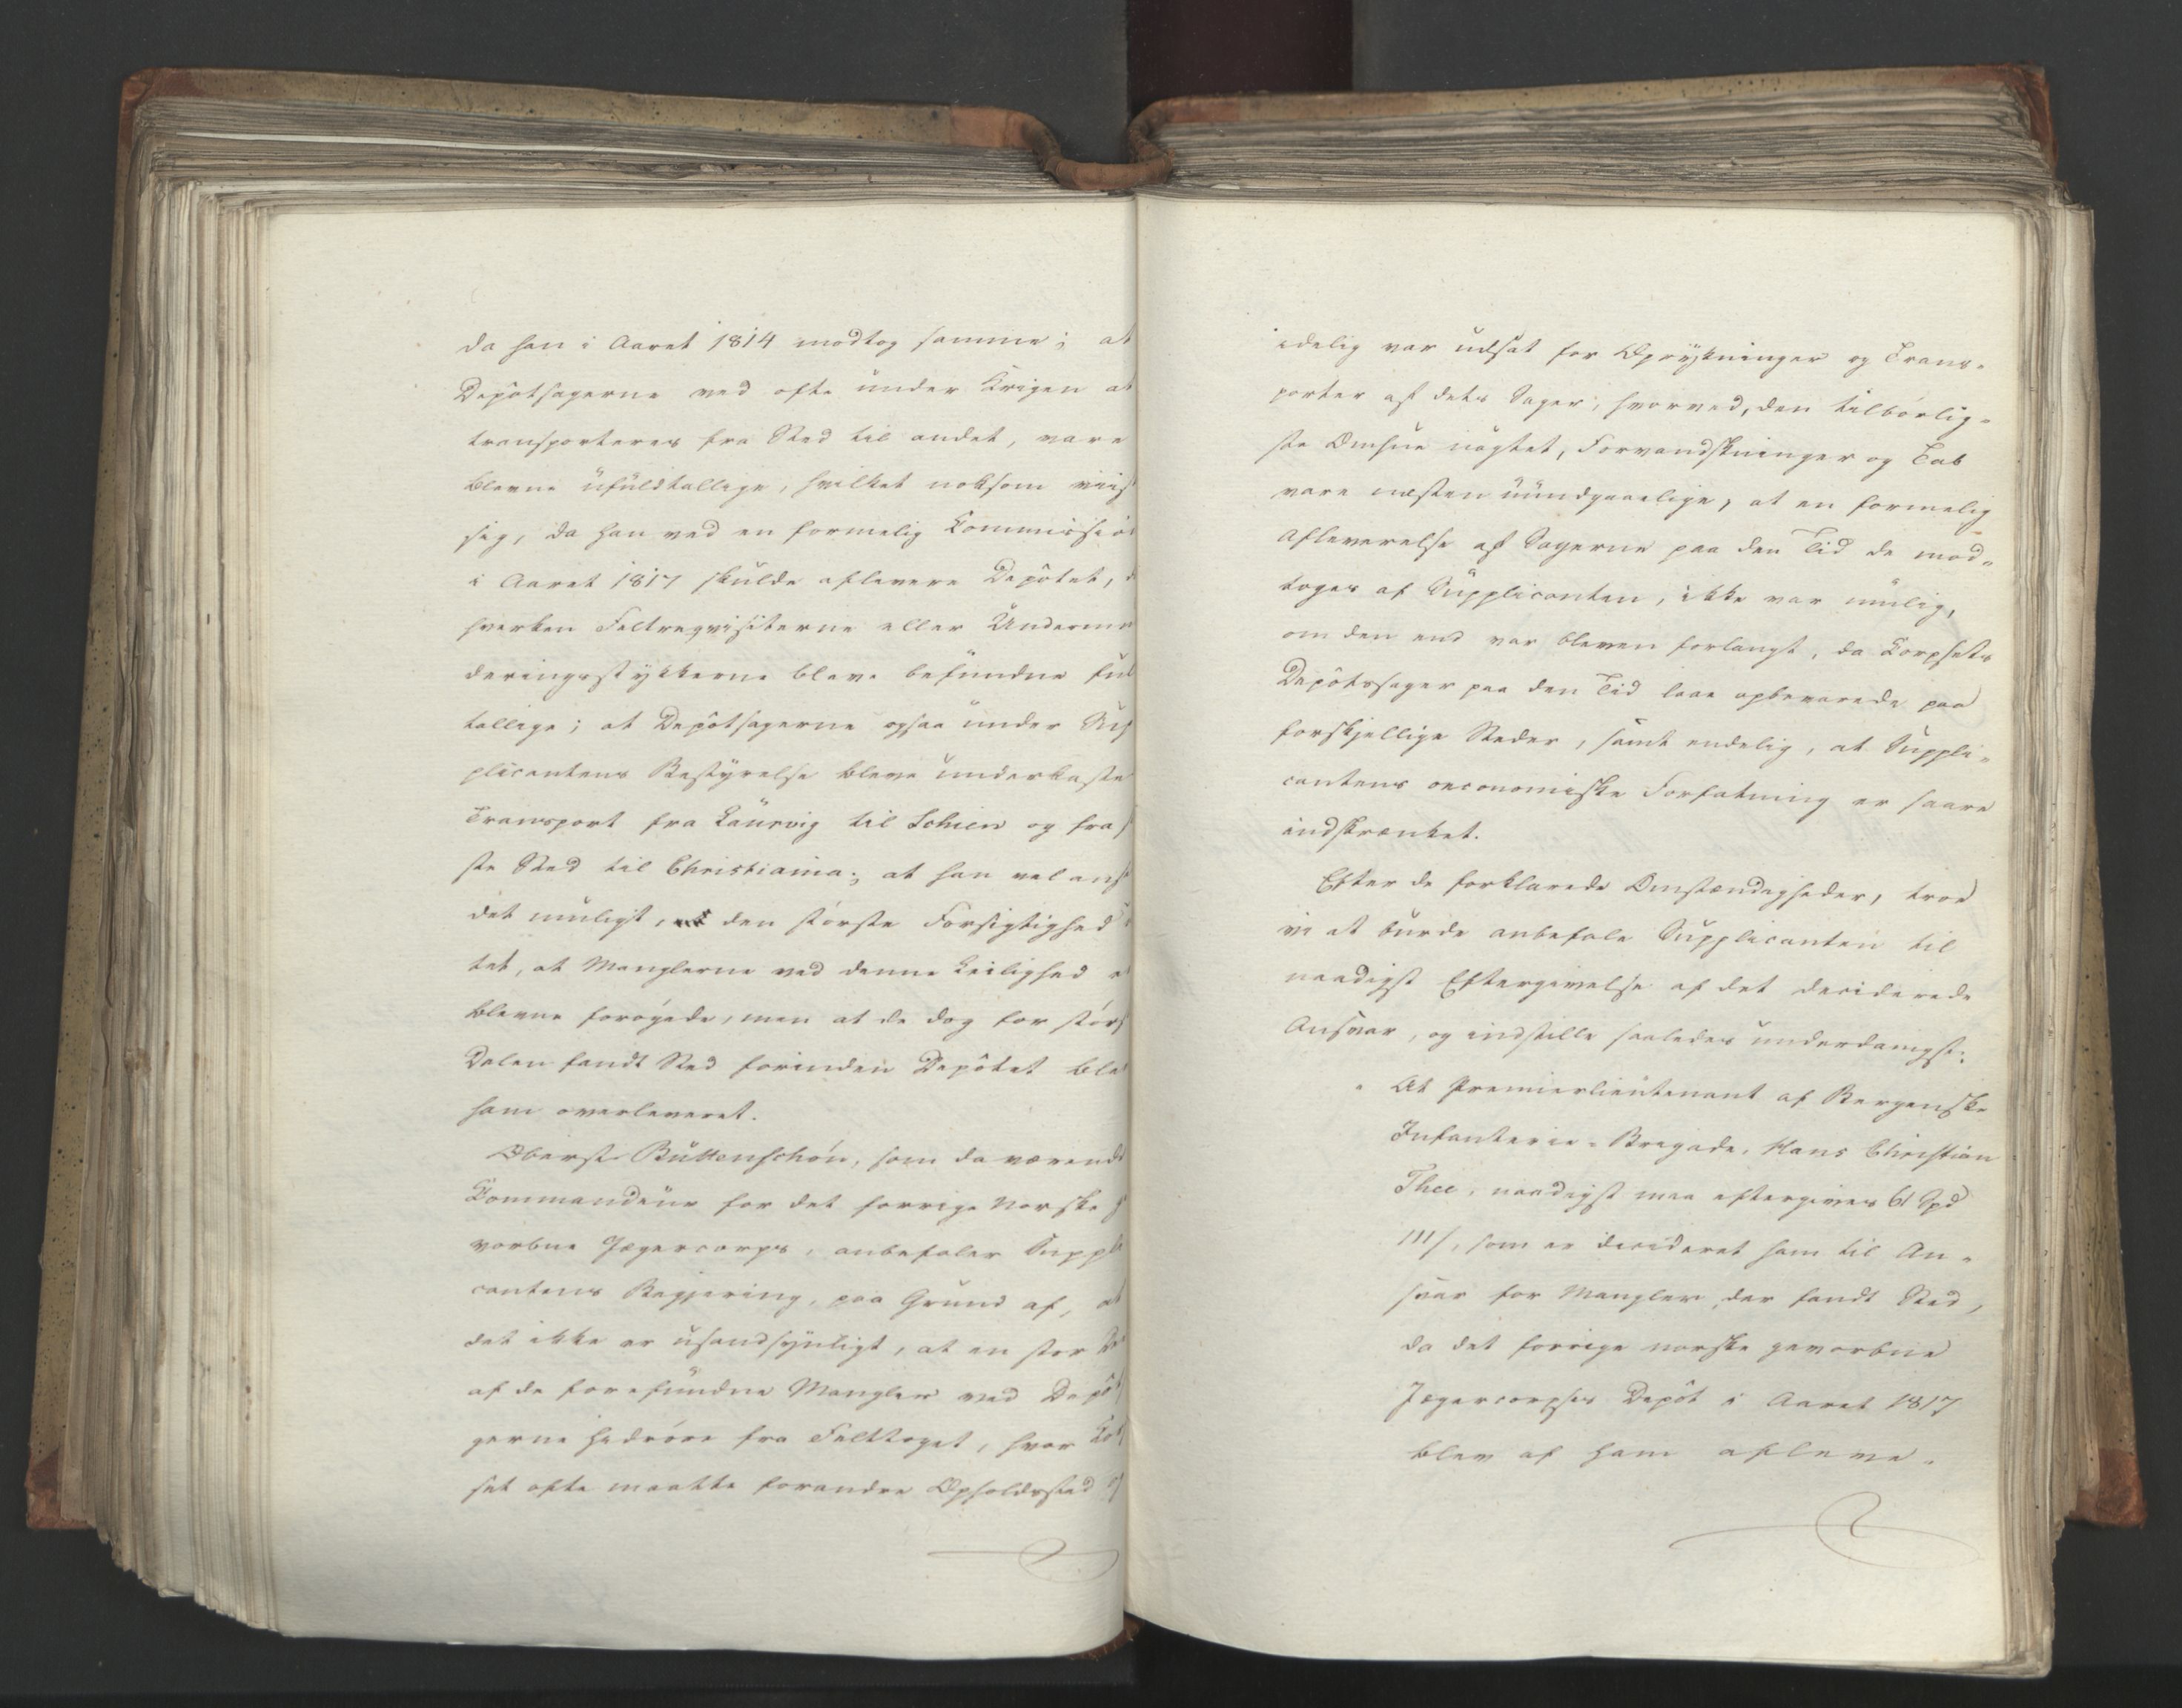 da han i Aaret 1814 modtog samme; at
Depôtsagerne ved ofte under Krigen at
transporteres fra Sted til andet, vare
blevne ufuldtallige, hvilket noksom viist
sig, da han ved en formelig Commission
i Aaret 1817 skulde aflevere Depôtet, 
hverken Feltreqvisiterne eller Underme
deringsstykkerne bleve befundne ful
tallige; at Depôtsagerne ogsaa under Sup
plicantens Bestyrelse bleve underkaste
Transport fra Laurvig til Schien og fra s
ste Sted til Christiania; at han vel ans
det muligt, den største Forsigtighed
tet, at Manglerne ved denne Leilighed
blevne forøgede, men at de dog for størs
Delen fandt Sted forinden Depôtet ble
ham overleveret.
Oberst Büttenschøn, som daværende
Commandeur for det forrige Norske g
vorbne Jægercorps, anbefaler Suppli
cantens Begjering, paa Grund af, at
det ikke er usandsynligt, at en stor De
af de forefundne Mangler ved Depôt
gerne hidrøre fra Felttoget, hvor Cor
set ofte maatte forandre Opholdssted og
idelig var udsat for Oprykninger og Trans-
porter af dets Sager, hvorved, den tilbørlig-
ste Omhue uagtet, Forvandskninger og Tab
vare næsten uundgaaelige, at en formelig
Afleverelse af Sagerne paa den Tid de mod-
toges af Supplicanten, ikke var mulig,
om den end var bleven forlangt, da Corpsets
Depôtssager paa den Tid laae opbevarede paa
forskjellige Steder, samt endelig, at Suppli-
cantens oeconomiske Forfatning er saare
indskrænket.
Efter de forklarede Omstændigheder, troe
vi at burde anbefale Supplicanten til
naadigst Eftergivelse af det deciderede
Ansvar, og indstille saaledes underdanigst:
" At Premierlieutenant af Bergenske
Infanterie-Brigade, Hans Christian
Thee, naadigst maa eftergives 61 Spd
111/, som er decideret ham til An-
svar for Mangler, der fandt Sted,
da det forrige norske gevorbne
Jægercorpses Depôt i Aaret 1817
blev af ham afleve-